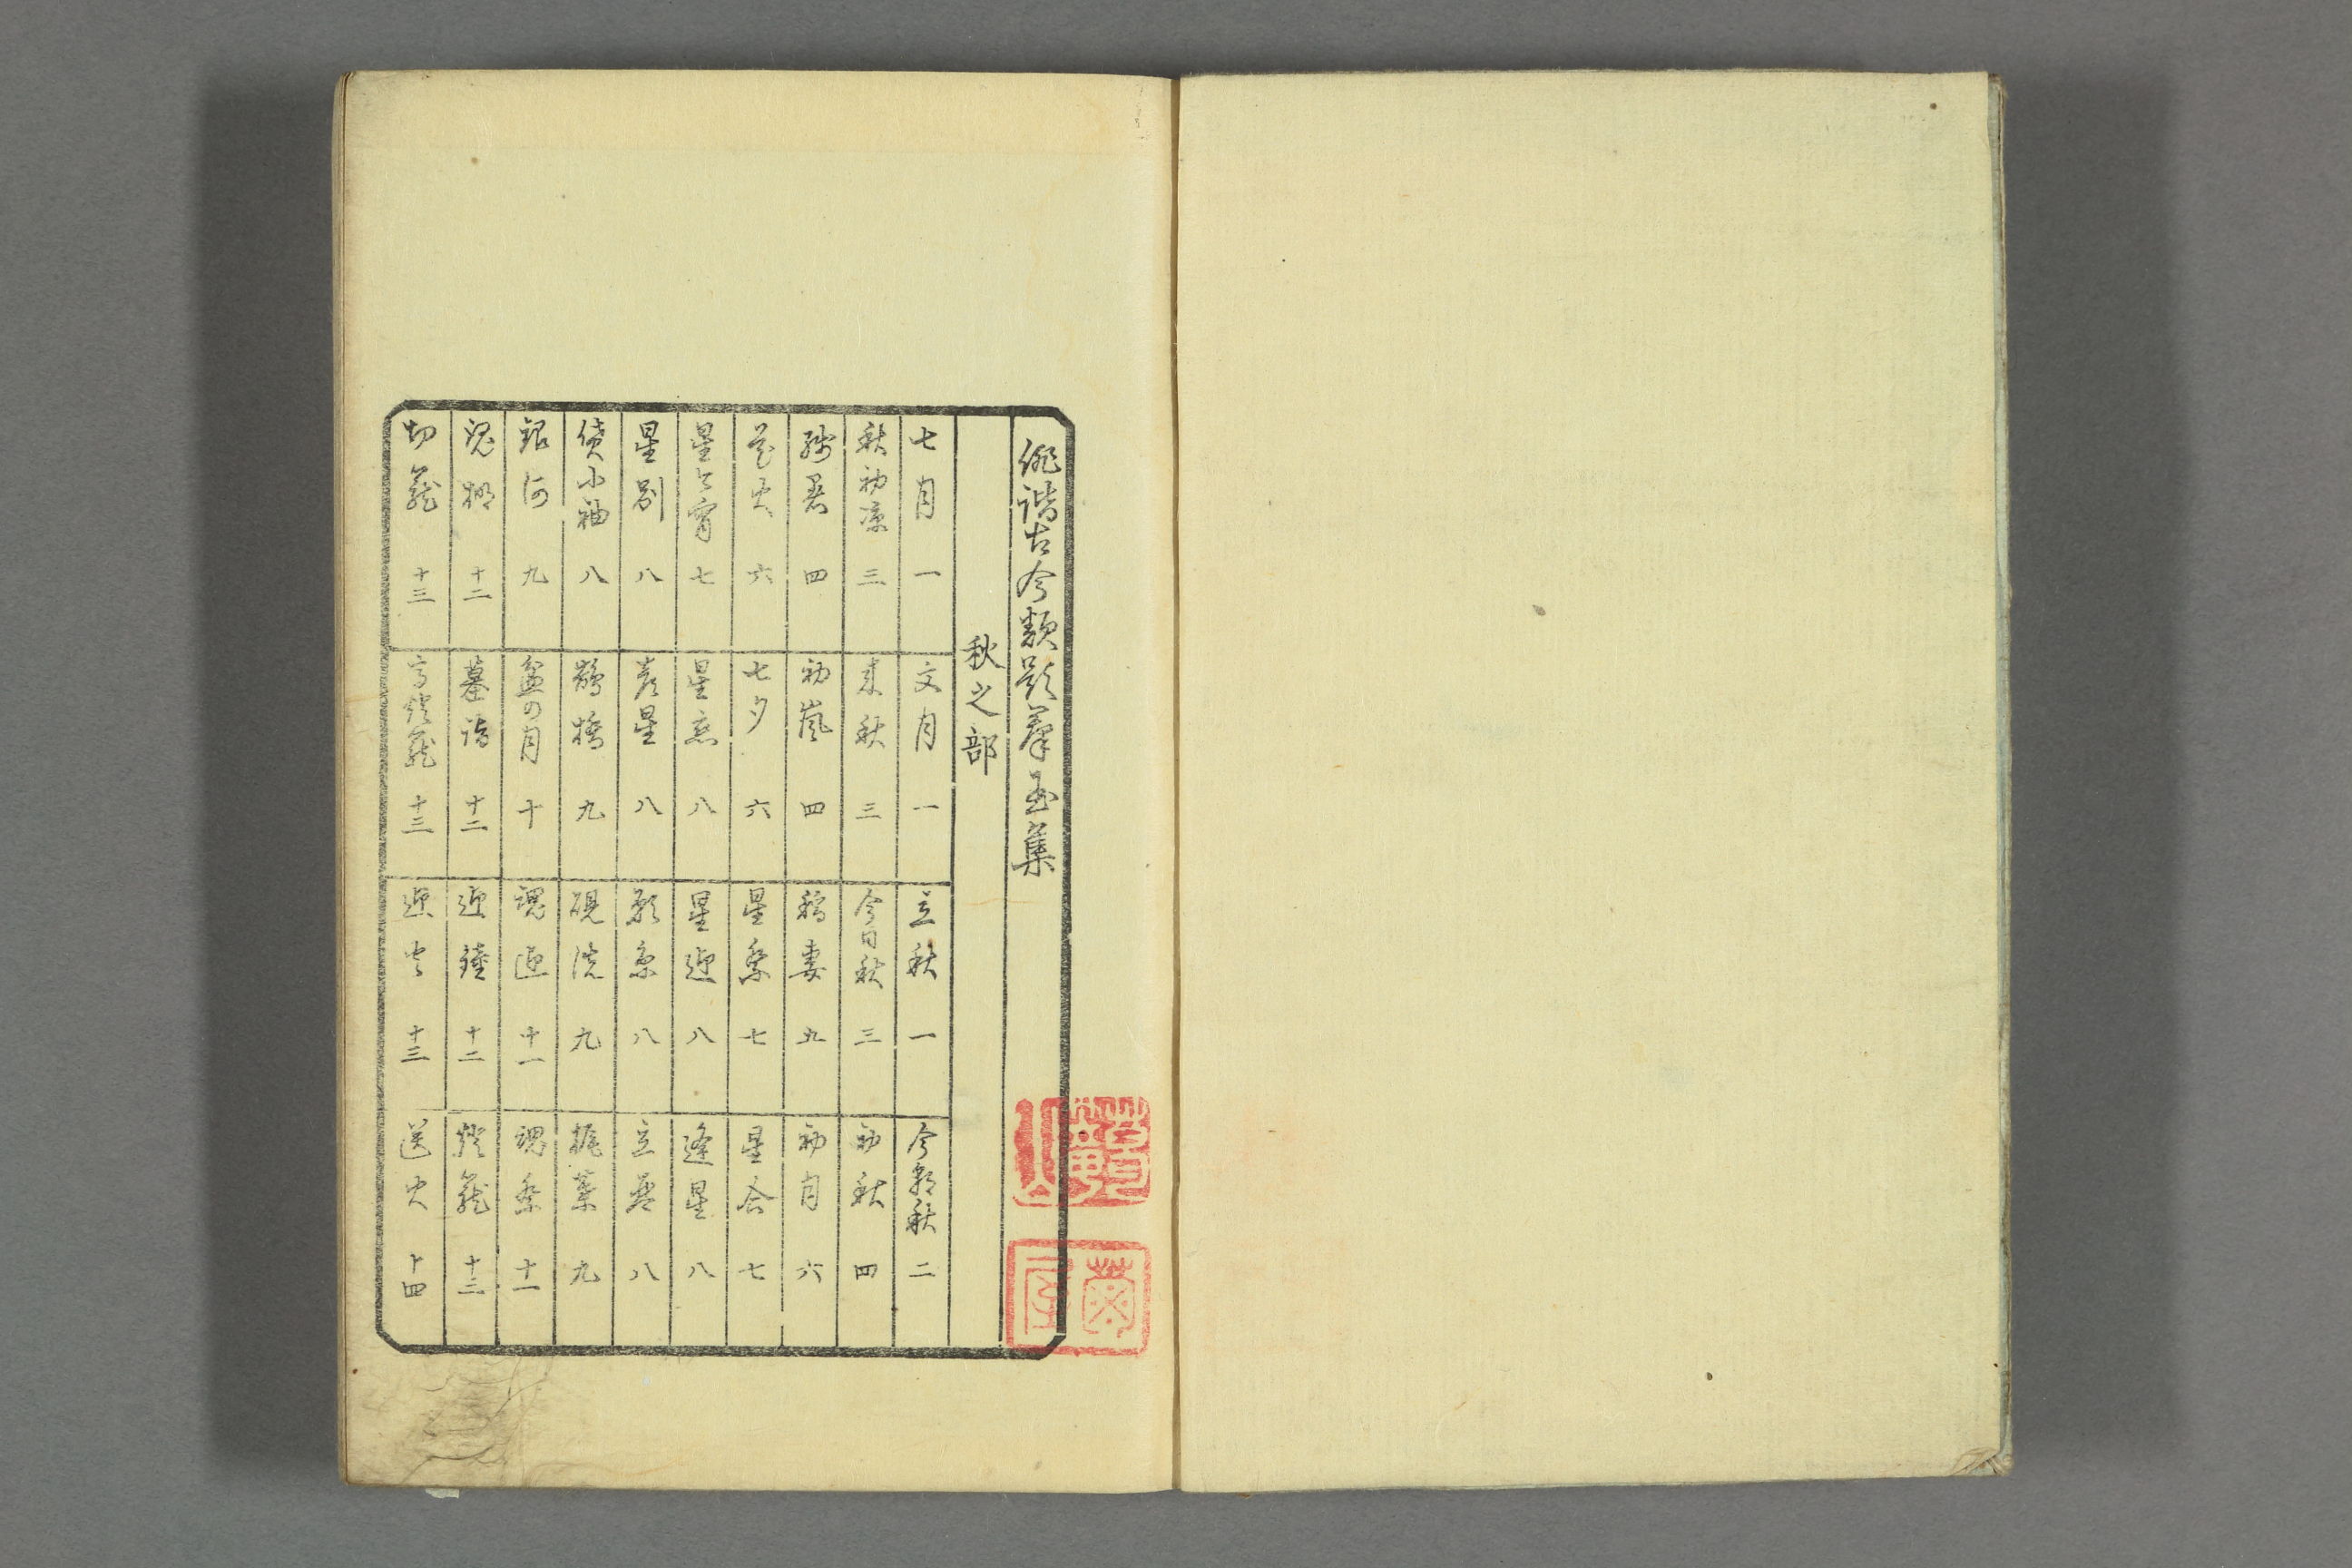 俳諧古今類題羣玉集
秋之部
七月 一
文月 一
立秋 一
今朝秋 二
秋初凉 三
来秋 三
今日秋 三
初秋 四
残暑 四
初嵐 四
稲妻 五
初月 六
花火 六
七夕 六
星祭 七
星合 七
星今宵 七
星恋 八
星迎 八
逢星 八
星別 八
彦星 八
願糸 八
立琴 八
貸小袖 八
鵲橋 九
硯洗 九
梶葉 九
銀河 九
盆の月 十
魂迎 十一
魂祭 十一
魂棚 十二
墓詣 十二
迎鐘 十二
燈籠 十三
切籠 十三
高燈籠 十三
迎火 十三
送火 十四